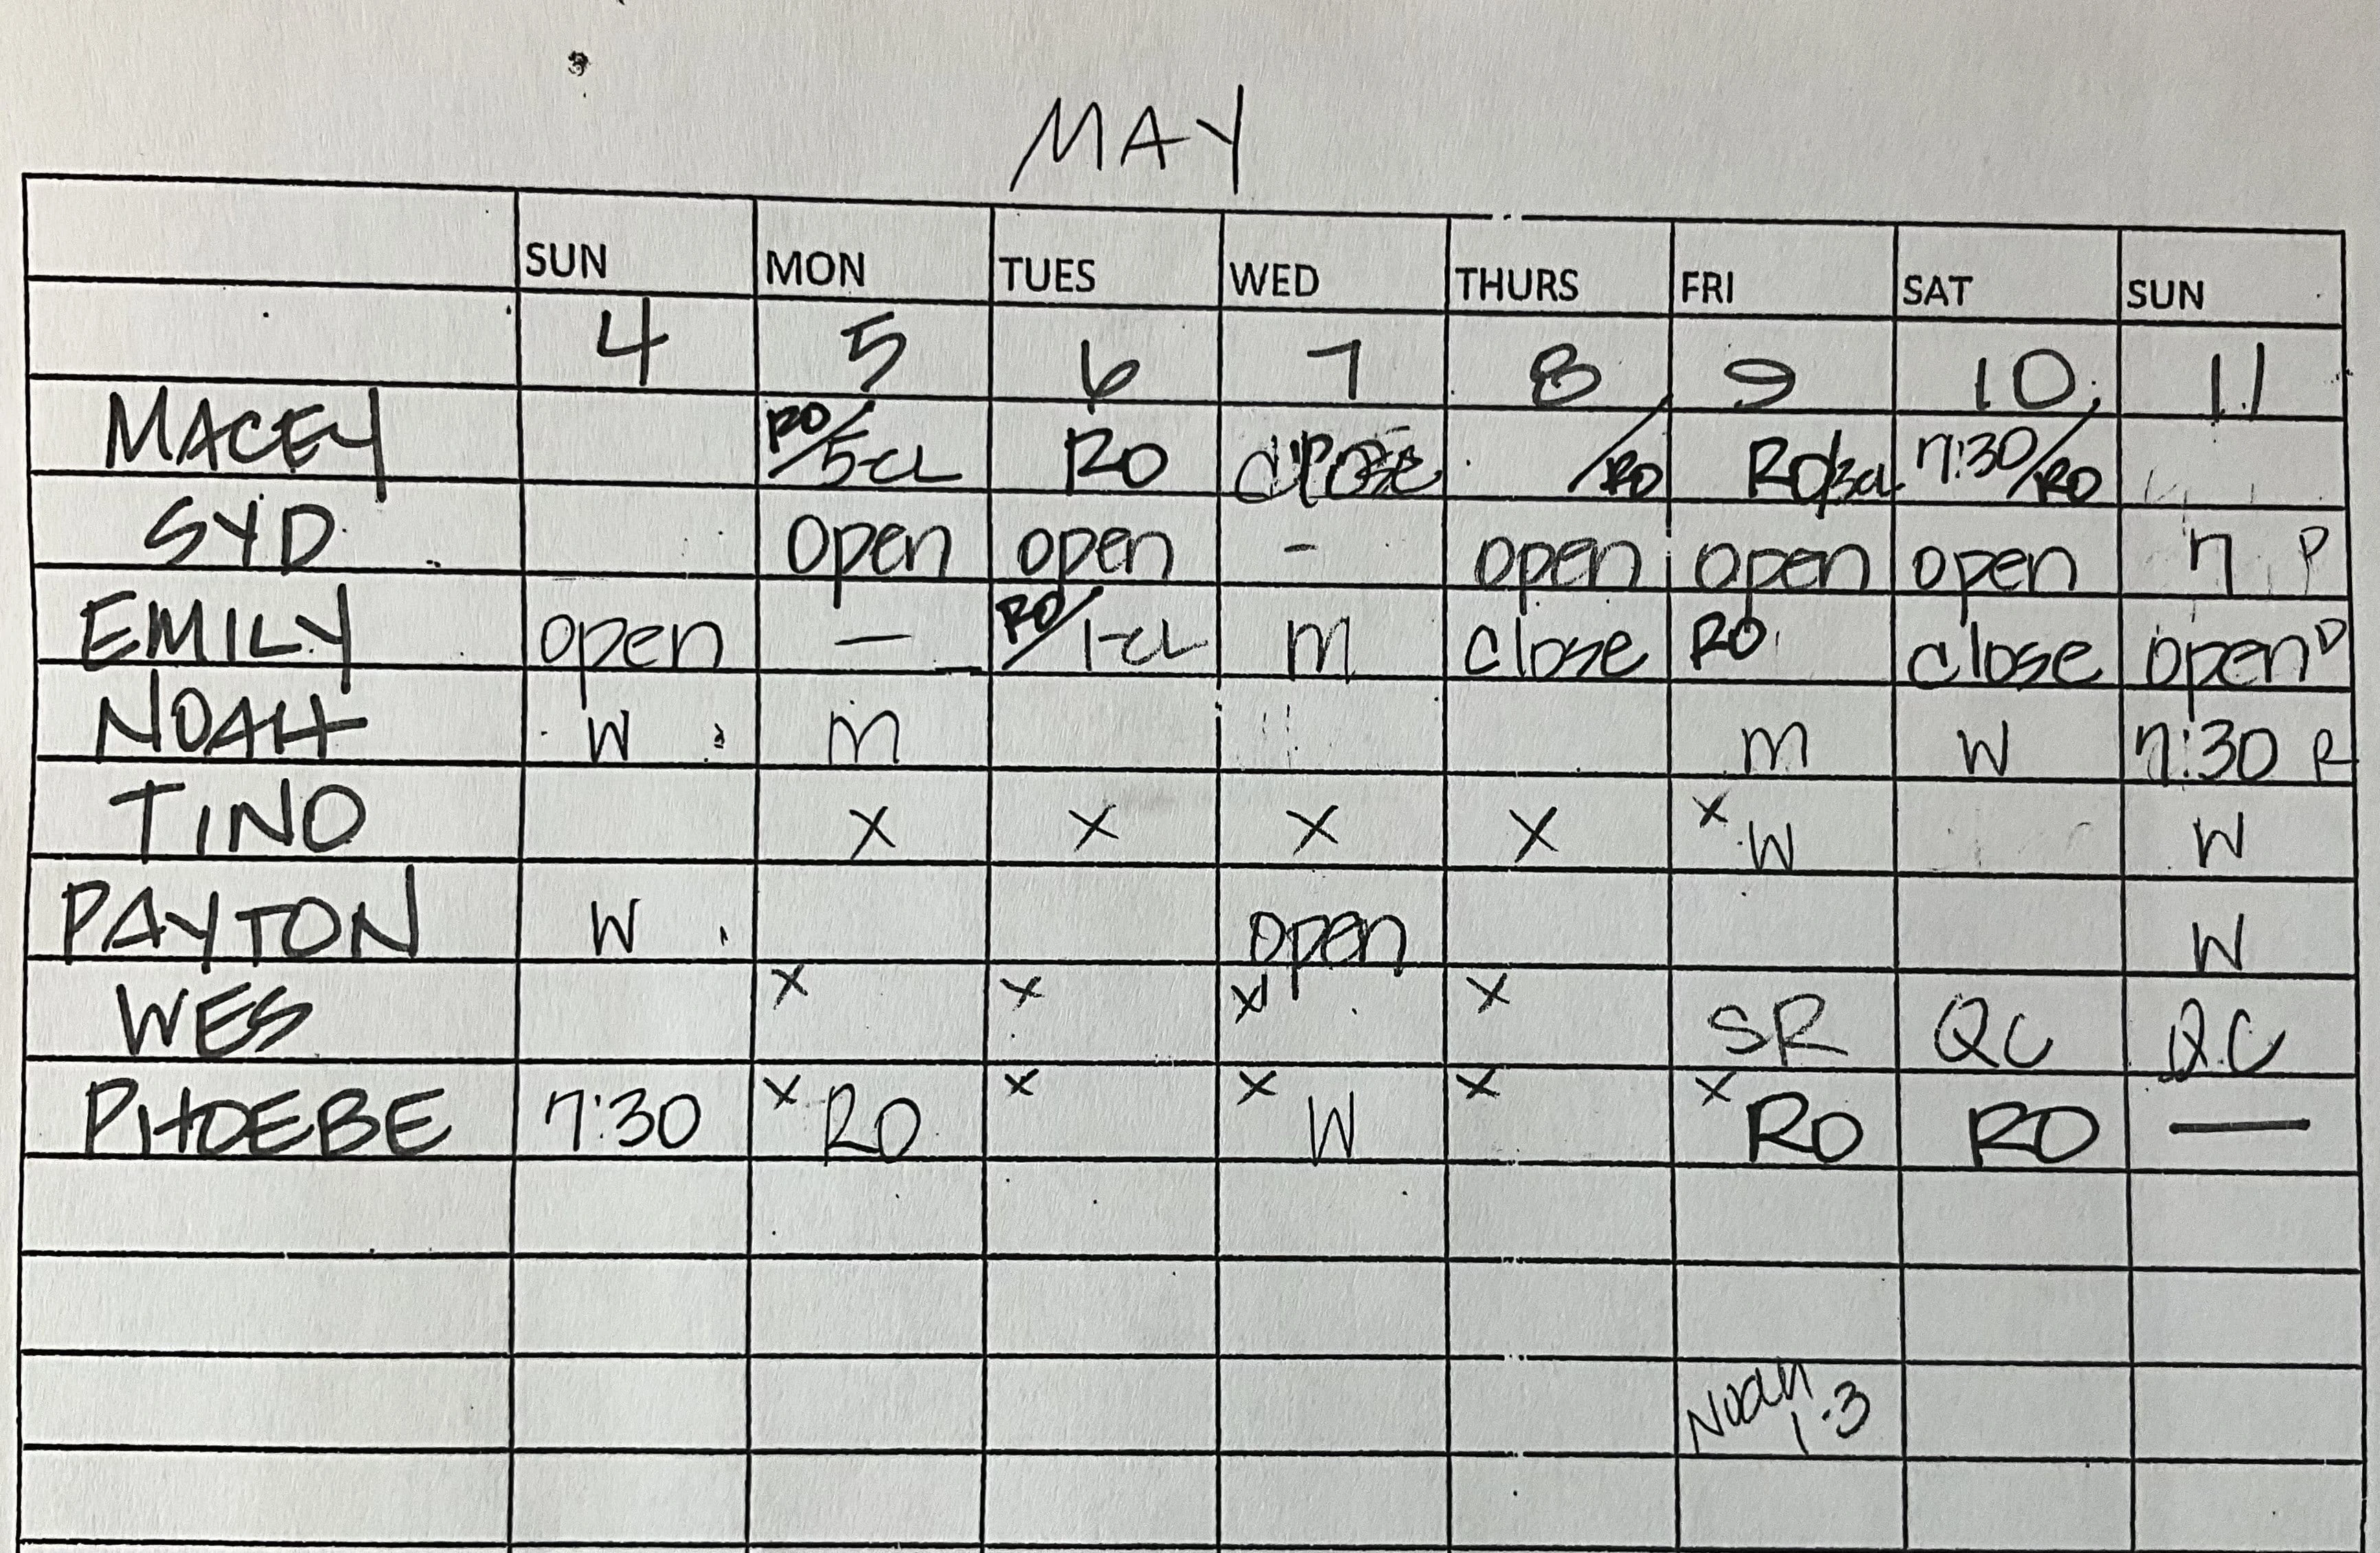 MAY
SUN MON TUES WED THURS FRI SAT SUN
4 5 6 7 8 9 10 11
MACEY RO/5-CL RO close /RO RO/3CL 7:30/RO
SYD open open - open open open 7 P
EMILY open — RO/1-CL m close RO close open D
NOAH W m m W 7:30 R
TINO X X X X X W W
PAYTON W open W
WES X X X X SR QC QC
PHOEBE 7:30 X RO X X W X X RO RO —
Noah
1-3